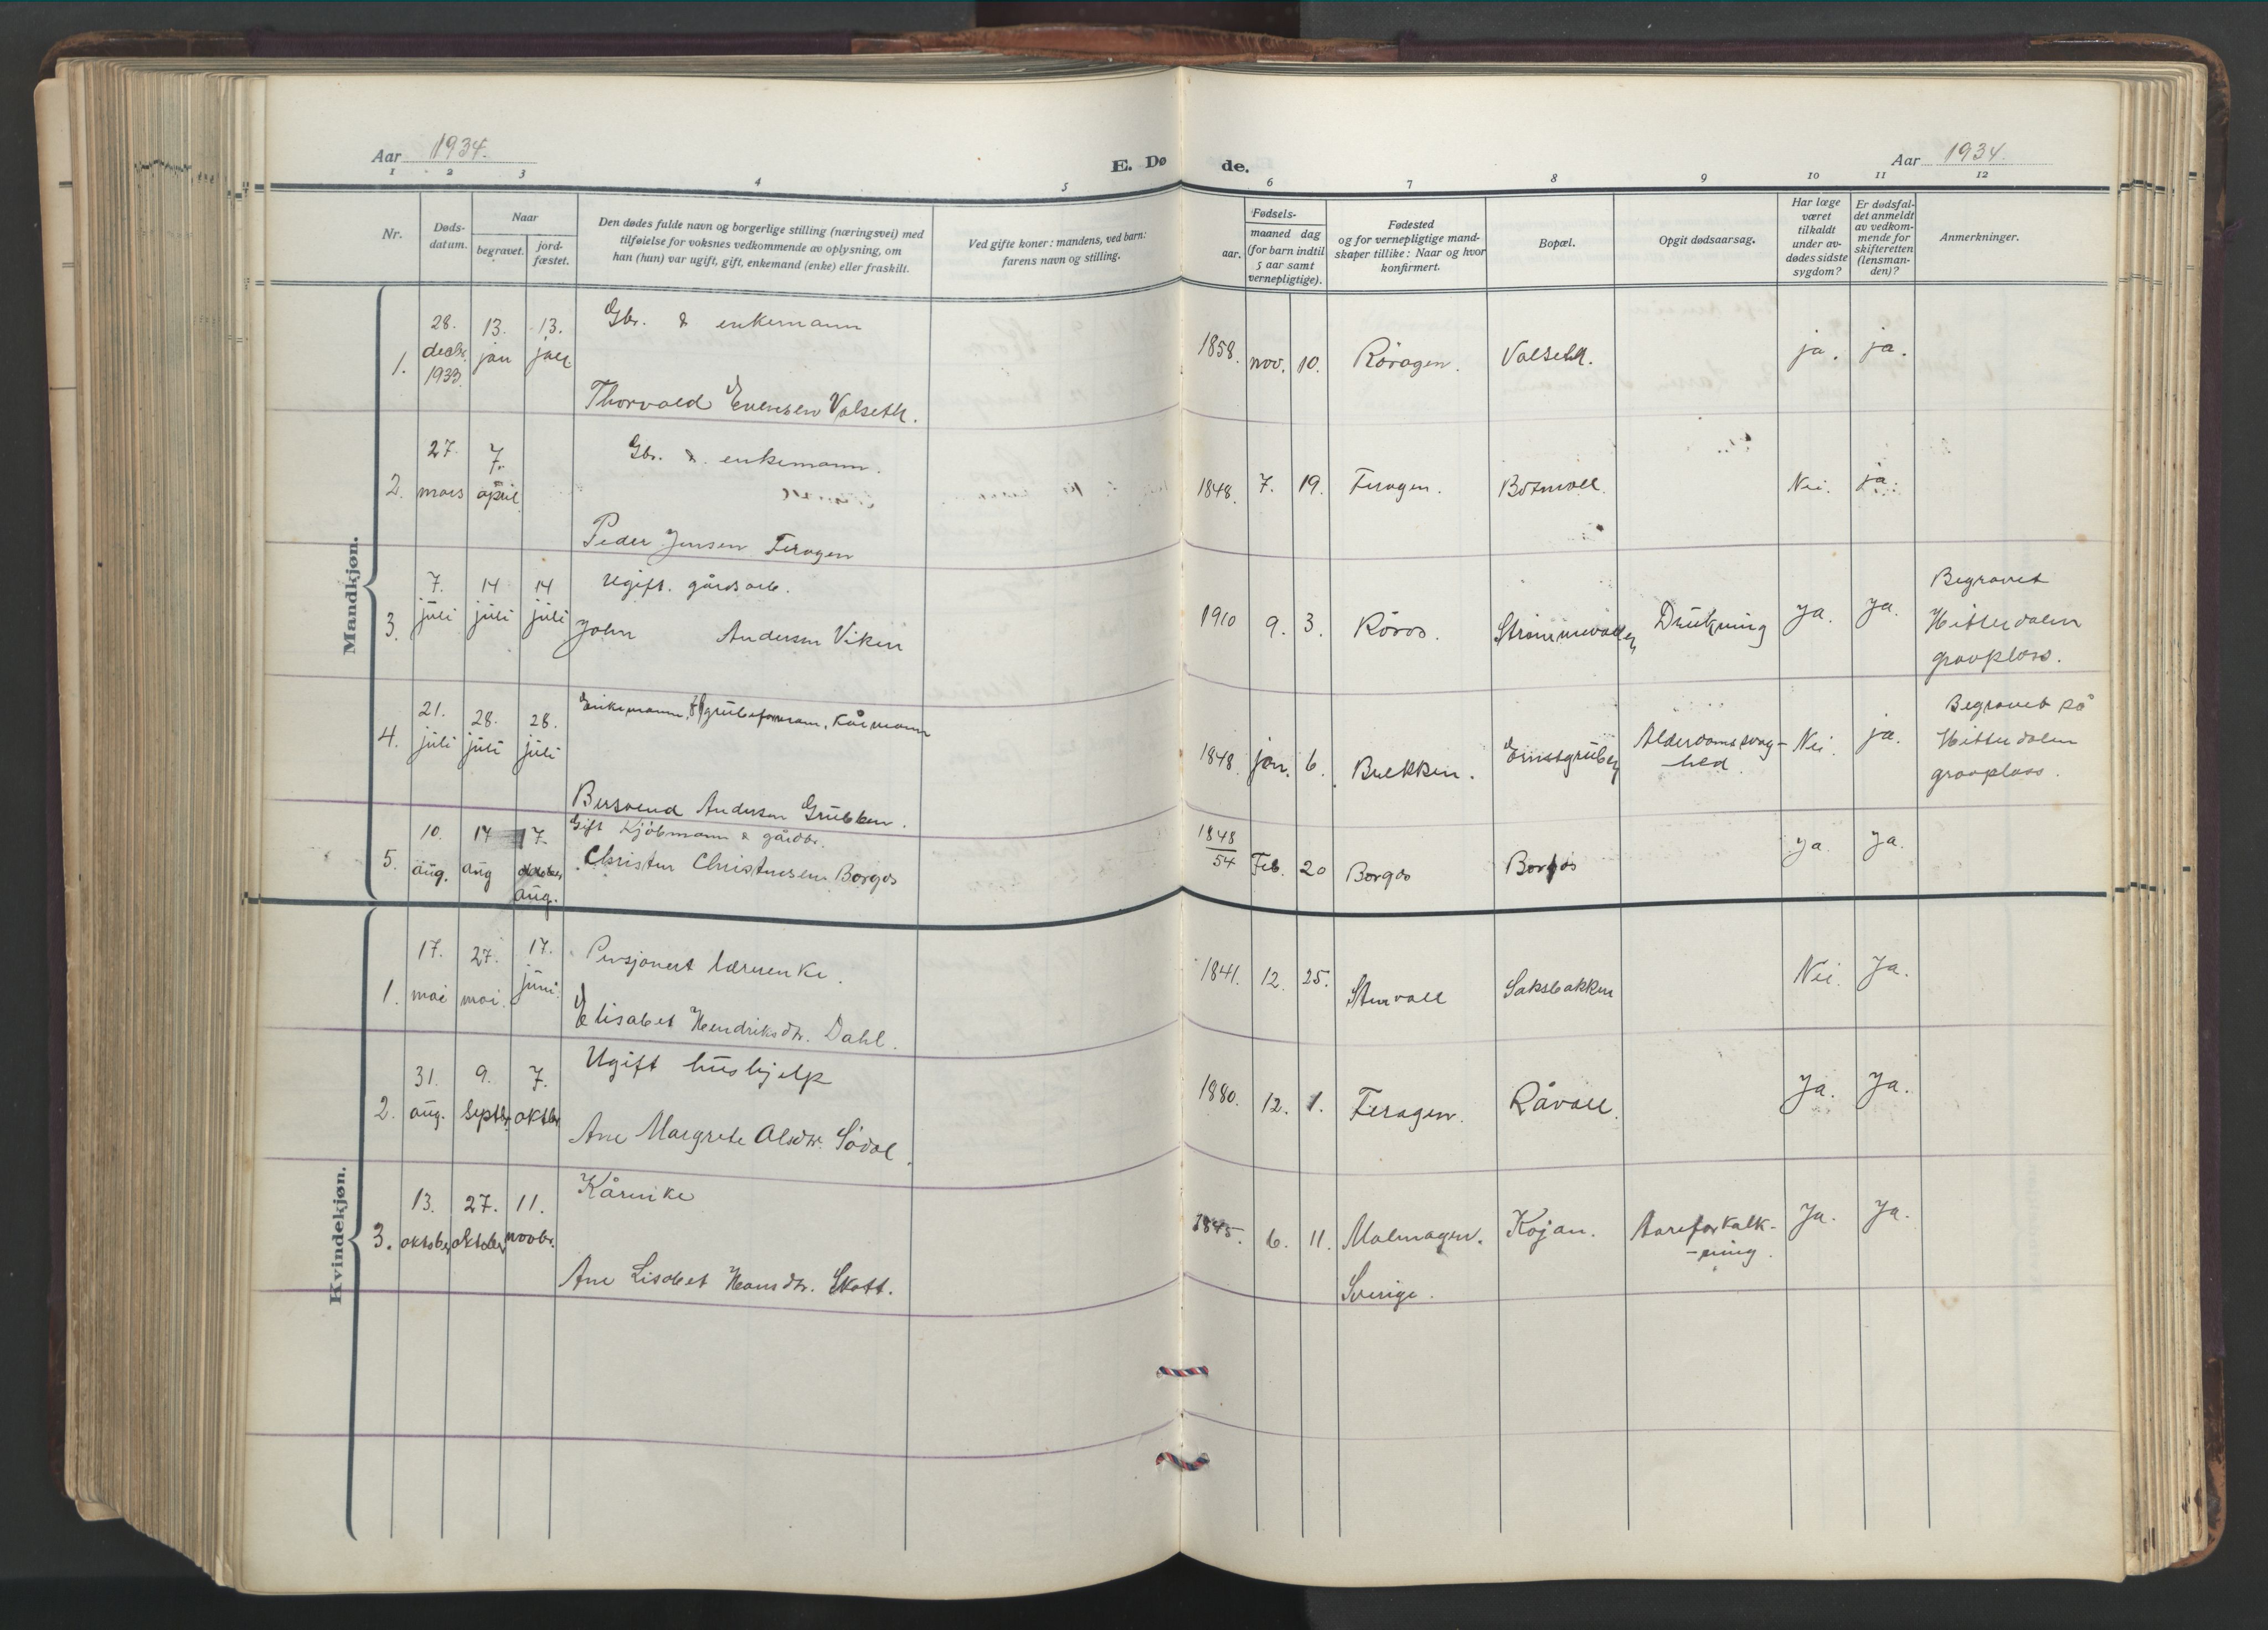 Aar 1934.
E. Dø de.
Aar 1934.
1 2 3 4 5 6 7 8 9 10 11 12
Nr.
Døds-
datum.
Naar
begravet.
jord-
fæstet.
Den dødes fulde navn og borgerlige stilling (næringsvei) med
tilføielse for voksnes vedkommende av oplysning, om
han (hun) var ugift, gift, enkemand (enke) eller fraskilt.
Ved gifte koner: mandens, ved barn:
farens navn og stilling.
Fødsels-
aar.
maaned dag
(for barn indtil
5 aar samt
vernepligtige).
Fødested
og for vernepligtige mand-
skaper tillike: Naar og hvor
konfirmert.
Bopæl.
Opgit dødsaarsag.
Har læge
været
tilkaldt
under av-
dødes sidste
sygdom?
Er dødsfal-
det anmeldt
av vedkom-
mende for
skifteretten
(lensman-
den)?
Anmerkninger.
Mandkjøn.
1.
28.
decbr.
1933.
13.
jan
13.
jan
Gbr. & enkemann
Thorvald Evensen Valseth.
1858. nov. 10.
Røragen.
Valseth.
ja.
ja.
2.
27.
mars
7.
april
Gbr. & enkemann.
Peder Jensen Feragen
1848. 7. 19.
Feragen.
Botnvoll.
Nei.
ja.
3.
7.
juli
14
juli
14
juli
Ugift. gårdsarb.
John Andersen Viken
1910 9. 3.
Røros.
Strømmevollen
Drukning
Ja.
Ja.
Begravet
Hitterdalen
gravplass.
4.
21.
juli
28.
juli
28.
juli
Enkemann, grubeformann, Kårmann
Bersvend Andersen Grubben.
1848. jan. 6.
Brekken.
Alderdomssvag-
hed.
Nei.
ja.
Begravet på
Hitterdalen
gravplass.
5.
10.
aug.
17
aug
17
aug.
Gift Kjøbmann & gårdbr.
Christen Christensen Borgos
1848
54
Feb. 20
Borgos
Borgos
Ja.
Ja.
Kvindekjøn.
1.
17.
mai
27.
mai.
17.
juni.
Pensjonert lærerenke.
Elisabet Hendriksdtr. Dahl.
1841. 12. 25.
Stenvoll
Saksbakken
Nei.
Ja.
2.
31.
aug.
9.
septbr.
7.
oktbr.
Ugift hushjelp
Ane Margrete Olsdtr. Sødal.
1880. 12. 1.
Feragen.
Råvoll.
Ja.
Ja.
3.
13.
oktober
27.
oktober
11.
novbr.
Kårenke
Ane Lisabet Hansdtr. Skott.
1845. 6. 11.
Malmagen.
Sverige.
Kojan.
Aareforkalk-
-ning.
Ja.
Ja.